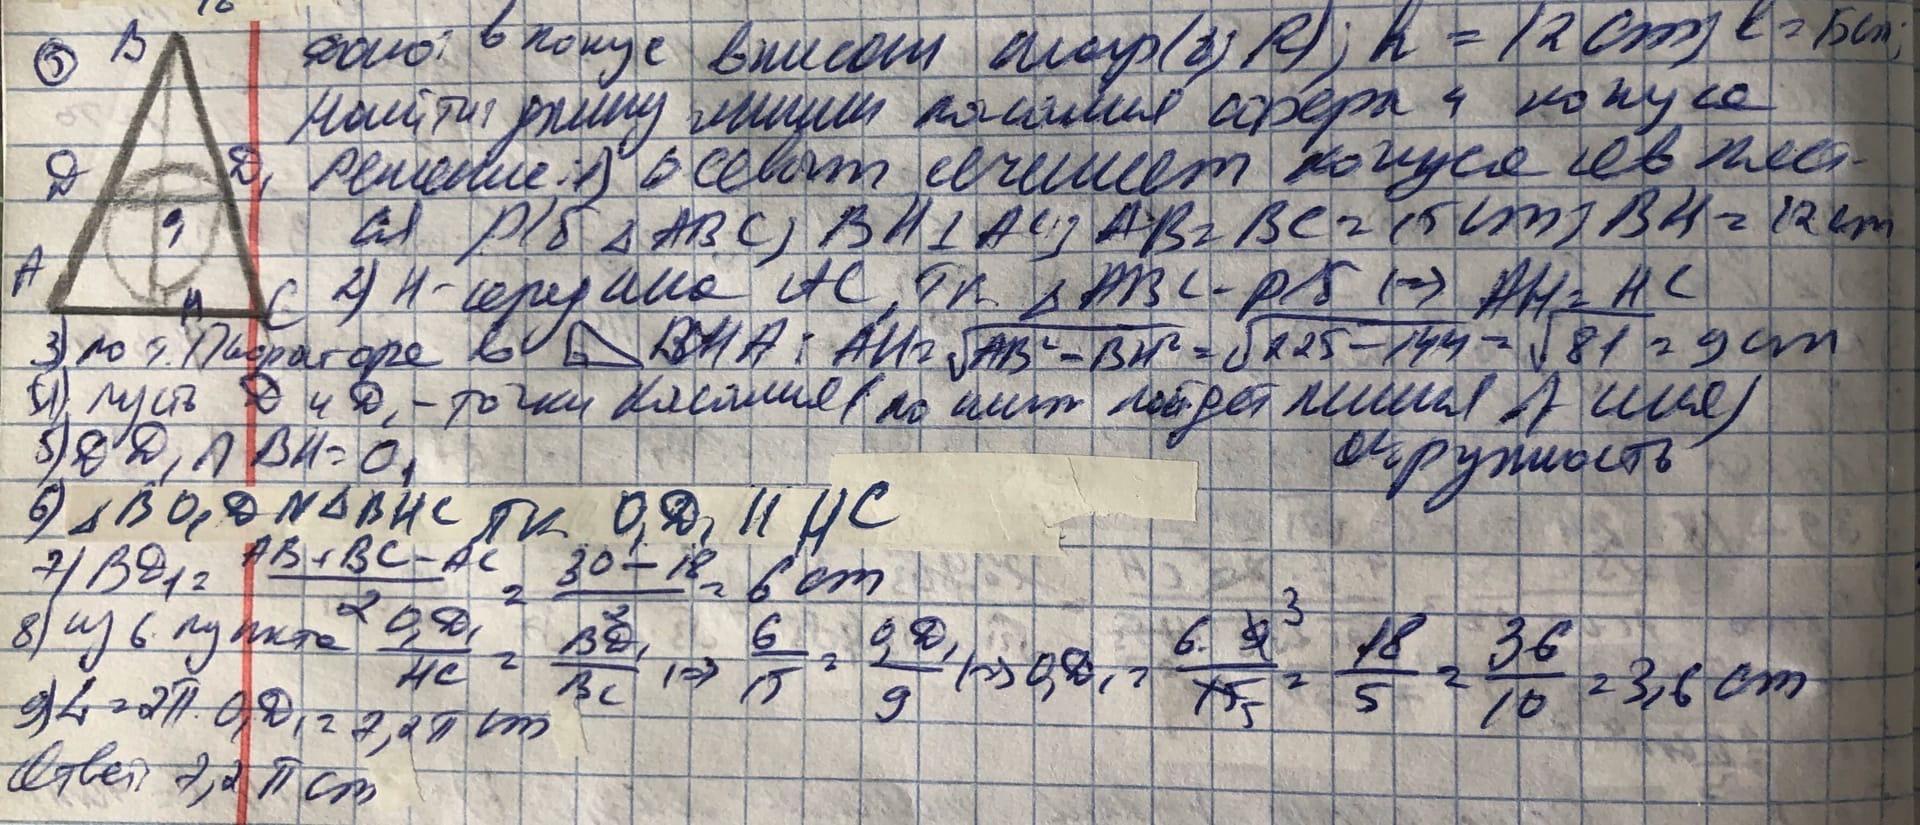 5
B
Д
Д₁
A
H
C
Дано: в конус вписан шар(r; R); h = 12 cm; l = 15 cm;
Найти: длину линии касания сферы и конуса
Решение: 1) Осевым сечением конуса являет-
ся р/б △ABC; BH ⊥ AC; AB = BC = 15 cm; BH = 12 cm
2) H - середина AC, тк △ABC - р/б (⇒) AH = HC
3) по т. Пифагора в BHA: AH = √AB² - BH² = √225 - 144 = √81 = 9 cm
4) пусть Д и Д₁ - точки касания (по ним пойдет линия
окружность
5) ДД₁ ∩ BH = O₁
6) △BO₁Д ~ △BHC тк O₁Д₁ || HC
7) BД₁ = (AB + BC - AC)/2 = (30 - 18)/2 = 6 cm
8) из 6. пункта O₁Д₁/HC = BД₁/BC ⇒ 6/15 = O₁Д₁/9 ⇒ O₁Д₁ = 6·9³/15₅ = 18/5 = 36/10 = 3,6 cm
9) L = 2π · O₁Д₁ = 7,2π cm
Ответ: 7,2π cm